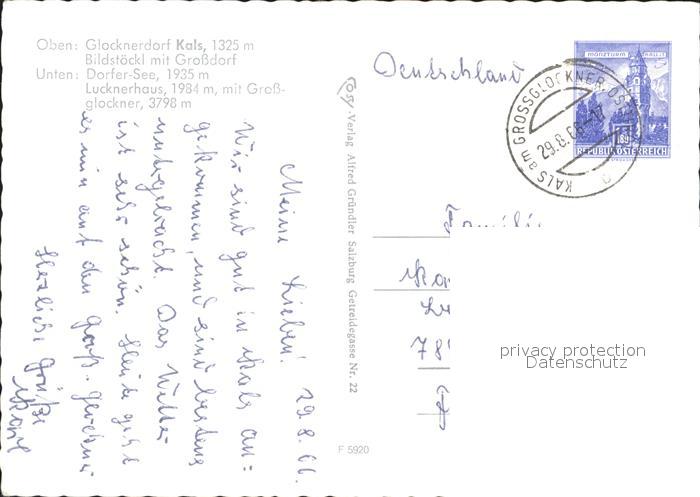 Oben: Glocknerdorf Kals, 1325 m
Bildstöckl mit Großdorf
Unten: Dorfer-See, 1935 m
Lucknerhaus, 1984 m, mit Groß-
glockner, 3798 m
Cosy-Verlag Alfred Gründler Salzburg Getreidegasse Nr. 22
F 5920
Deutschland
MÜNZTURM HALL I.T.
1.80
REPUBLIK ÖSTERREICH
KALS am GROSSGLOCKNER, OST
29.8.66-17
a
Familie
78
privacy protection
Datenschutz
29.8.66.
Meine Lieben!
Wir sind gut in Kals an=
gekommen, und sind bestens
untergebracht. Das Wetter
ist sehr schön. Heute geht
es nun auf den Groß-glockner
Herzliche Grüße
Karl